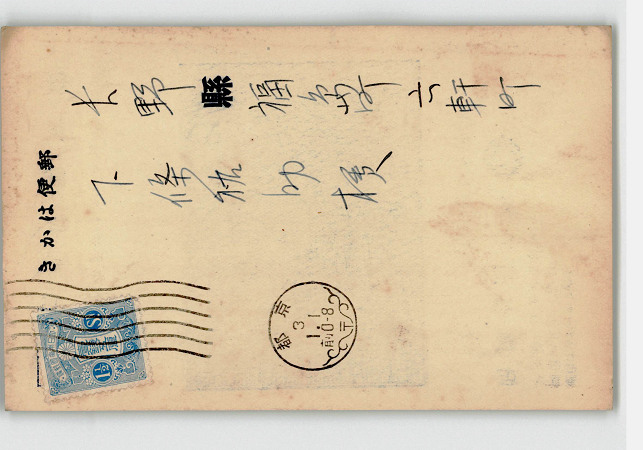 郵便はかき
長野縣福島町六軒町
下條
助様
京都
3
1.1
前0-8